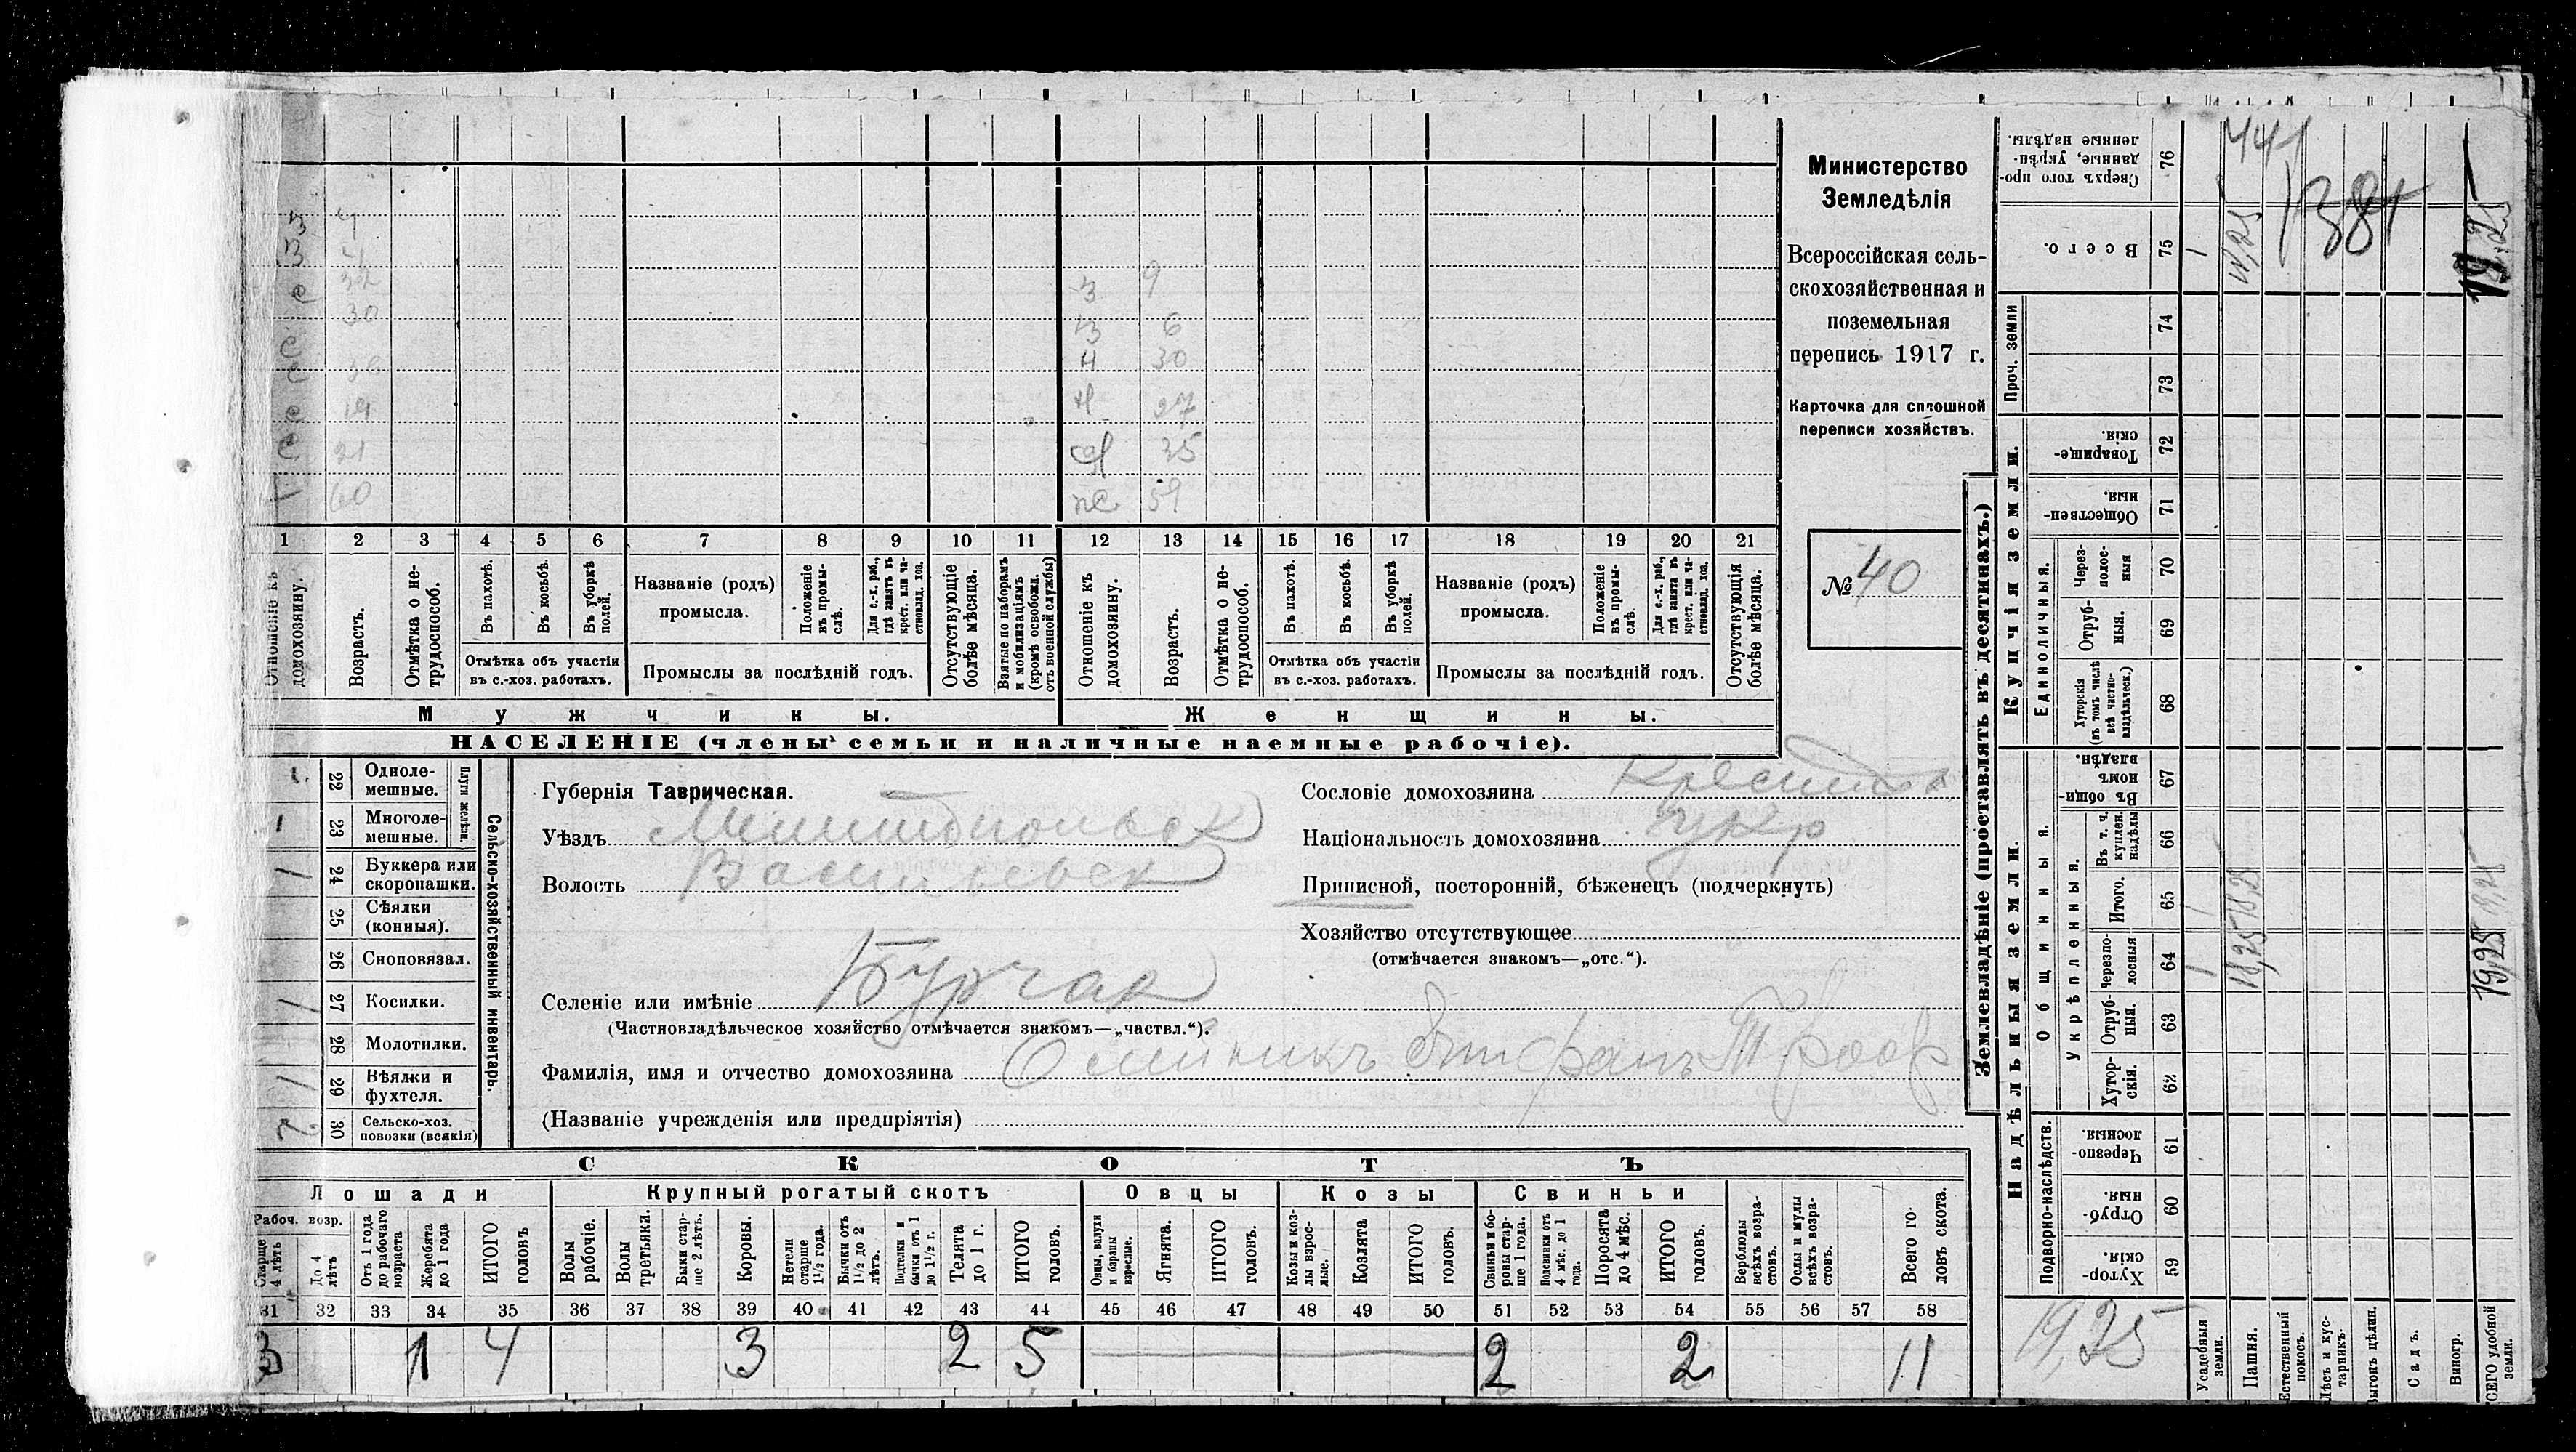 Министерство
Земледѣлія
Всероссійская сель-
скохозяйственная и
поземельная
перепись 1917 г.
Карточка для сплошной
переписи хозяйствъ.
№ 40
З 4
З 4
с 32
с 30
с
с 19
с 21
1 60
З 9
З 6
Н 30
Н 27
35
же 59
1 2 3 4 5 6 7 8 9 10 11 12 13 14 15 16 17 18 19 20 21
Отношеніе къ домохозяину.
Возрастъ.
Отмѣтка о не-трудоспособ.
Въ пахотѣ.
Въ косьбѣ.
Въ уборкѣ полей.
Отмѣтка объ участіи въ с.-хоз. работахъ.
Названіе (родъ) промысла.
Положеніе въ промы-слѣ.
Для с.-х. раб., гдѣ занятъ въ крест. или ча-стновлад. хоз.
Промыслы за послѣдній годъ.
Отсутствующіе болѣе мѣсяца.
Взятые по наборамъ и мобилизаціямъ (кромѣ освобожд. отъ военной службы)
Отношеніе къ домохозяину.
Возрастъ.
Отмѣтка о не-трудоспособ.
Въ пахотѣ.
Въ косьбѣ.
Въ уборкѣ полей.
Отмѣтка объ участіи въ с.-хоз. работахъ.
Названіе (родъ) промысла.
Положеніе въ промы-слѣ.
Для с.-х. раб., гдѣ занятъ въ крест. или ча-стновлад. хоз.
Промыслы за послѣдній годъ.
Отсутствующія болѣе мѣсяца.
Мужчины. Женщины.
НАСЕЛЕНІЕ (члены семьи и наличные наемные рабочіе).
Сельско-хозяйственный инвентарь.
Плуги желѣзн.
1 22 Одноле-мешные.
1 23 Многоле-мешные.
1 24 Буккера или скоропашки.
25 Сѣялки (конныя).
26 Сноповязал.
1 27 Косилки.
28 Молотилки.
1 29 Вѣялки и фухтеля.
2 30 Сельско-хоз. повозки (всякія)
Губернія Таврическая.
Уѣздъ Мелитопольск
Волость Васильевск
Селеніе или имѣніе Бурчак
(Частновладѣльческое хозяйство отмѣчается знакомъ—„частвл.“).
Сословіе домохозяина Крестья
Національность домохозяина укр
Приписной, посторонній, бѣженецъ (подчеркнуть)
Хозяйство отсутствующее
(отмѣчается знакомъ—„отс.“).
Фамилія, имя и отчество домохозяина Олійникъ
(Названіе учрежденія или предпріятія)
СКОТЪ
Лошади Крупный рогатый скотъ Овцы Козы Свиньи
Рабоч. возр.
Старше 4 лѣтъ
До 4 лѣтъ
Отъ 1 года до рабочаго возраста
Жеребята до 1 года
ИТОГО головъ
Волы рабочіе.
Волы третьяки.
Быки стар-ше 2 лѣтъ.
Коровы.
Нетели старше 1½ года.
Бычки отъ 1½ до 2 лѣтъ.
Подтелки и бычки отъ 1 до 1½ г.
Телята до 1 г.
ИТОГО головъ.
Овцы, валухи и бараны взрослые.
Ягнята.
ИТОГО головъ.
Козы и коз-лы взрос-лые.
Козлята
ИТОГО головъ.
Свиньи и бо-ровы стар-ше 1 года.
Подсвинки отъ 4 мѣс. до 1 года.
Поросята до 4 мѣс.
ИТОГО головъ.
Верблюды всѣхъ возра-стовъ.
Ослы и мулы всѣхъ возра-стовъ.
Всего го-ловъ скота.
31 32 33 34 35 36 37 38 39 40 41 42 43 44 45 46 47 48 49 50 51 52 53 54 55 56 57 58
3 1 4 3 2 5 2 2 11
Землевладѣніе (проставлять въ десятинахъ.)
Надѣльныя земли. Купчія земли. Проч. земли
Подворно-наслѣдств.
Общинныя.
Укрѣпленныя.
Единоличныя.
Сверхъ того про-данные, укрѣп-ленные надѣлы. 76
Всего. 75
74
73
Товарище-скія. 72
Обществен-ныя. 71
Через-полос-ныя 70
Отруб-ныя. 69
Хуторскія (въ томъ числѣ всѣ частно-владѣльческ.) 68
Въ общин-номъ владѣн. 67
Въ т. ч. куплен. надѣлы 66
Итого. 65
Черезпо-лосныя 64
Отруб-ныя. 63
Хутор-скія. 62
Черезпо-лосныя 61
Отруб-ныя. 60
Хутор-скія. 59
Усадебныя земли.
Пашня.
Естественный покосъ.
Лѣсъ и кус-тарникъ.
Выгонъ цѣлин.
Садъ.
Виногр.
ВСЕГО удобной земли.
441
1381
1 18,25 19,25
1 18,25 19,25
19,25